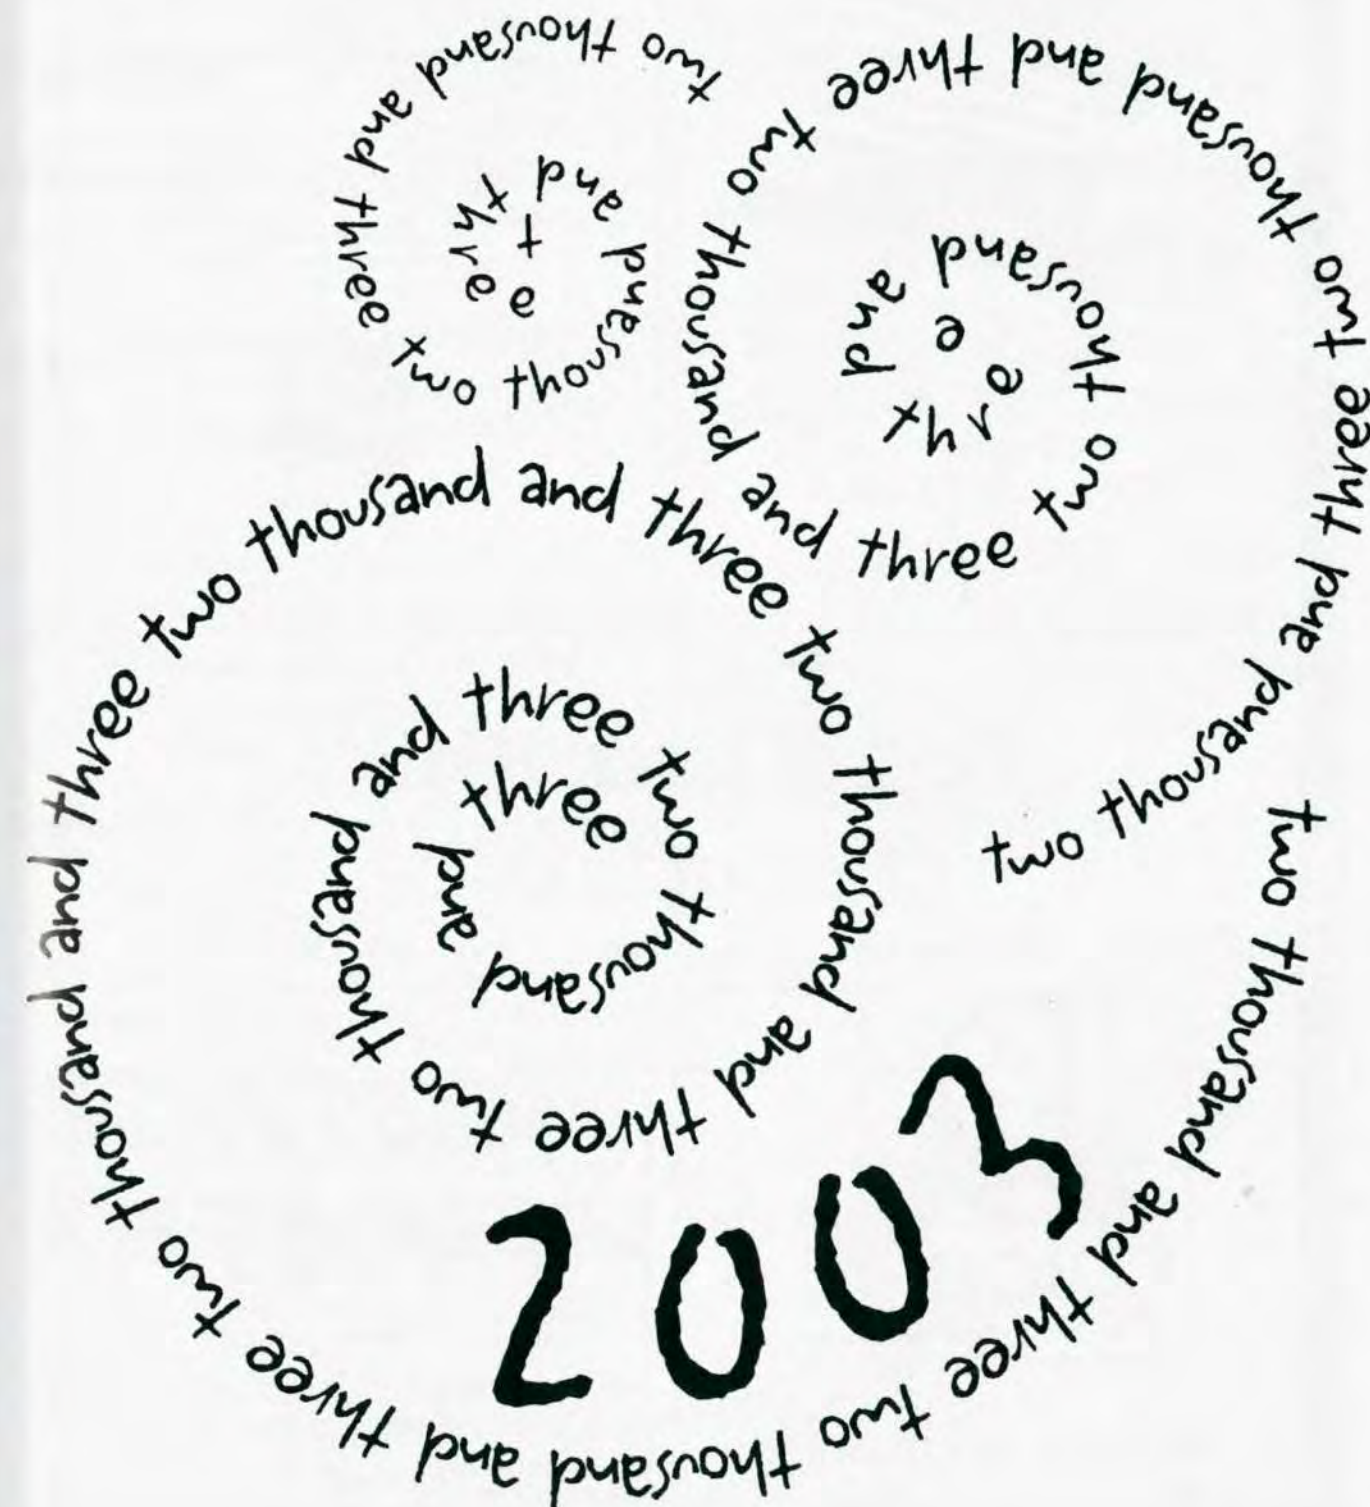 two thousand and three two thousand and three t
two thousand and three two thousand and three two thousand and three two thousand and three
two thousand and three two thousand and three two thousand and three two thousand and three two thousand and three two thousand and three two thousand and three
2003